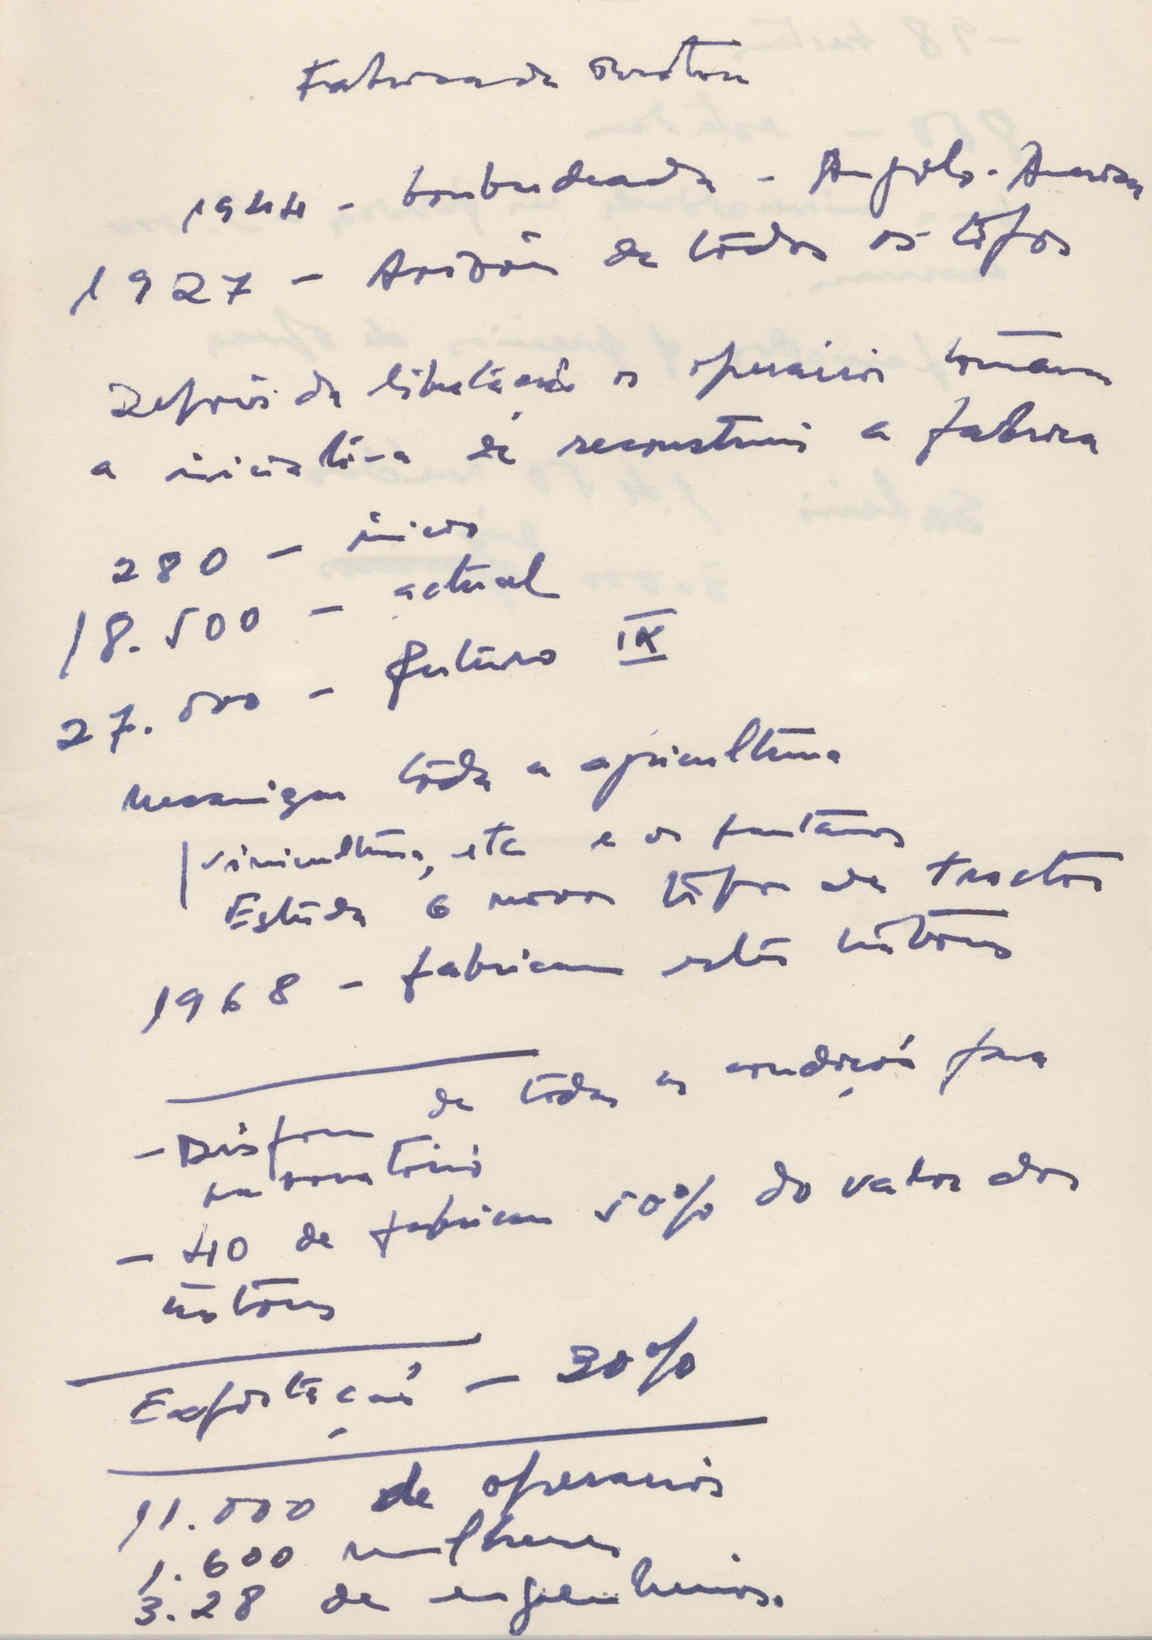 Fabrica de tractores
1944 - bombardeada - Anglo-America
1927 - Aviões de todos os tipos
Depois da libertação os operarios tomaram
a iniciativa de reconstruir a fabrica
280 - inicio
18.500 - actual
27.000 - futuro IX
mecanizar toda a agricultura
vinicultura, etc e os pantanos
Estuda 6 novos tipos de tractores
1968 - fabricam estes
- Dispõem de todas as condições para
- 40 de fabricam 50% do valor dos
Exportação - 30%
11.000 de operarios
1.600 mulheres
3.28 de engenheiros.